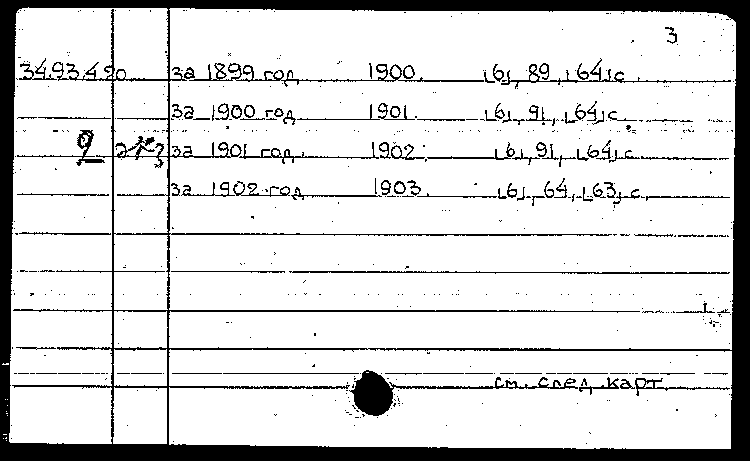 3
34.93.4.20 за 1899 год 1900. [6], 89, [64] с.
за 1900 год 1901. [6], 91, [64] с.
2 экз за 1901 год. 1902. [6], 91, [64] с.
за 1902 год 1903. [6], 64, [63] с.
см. след. карт.